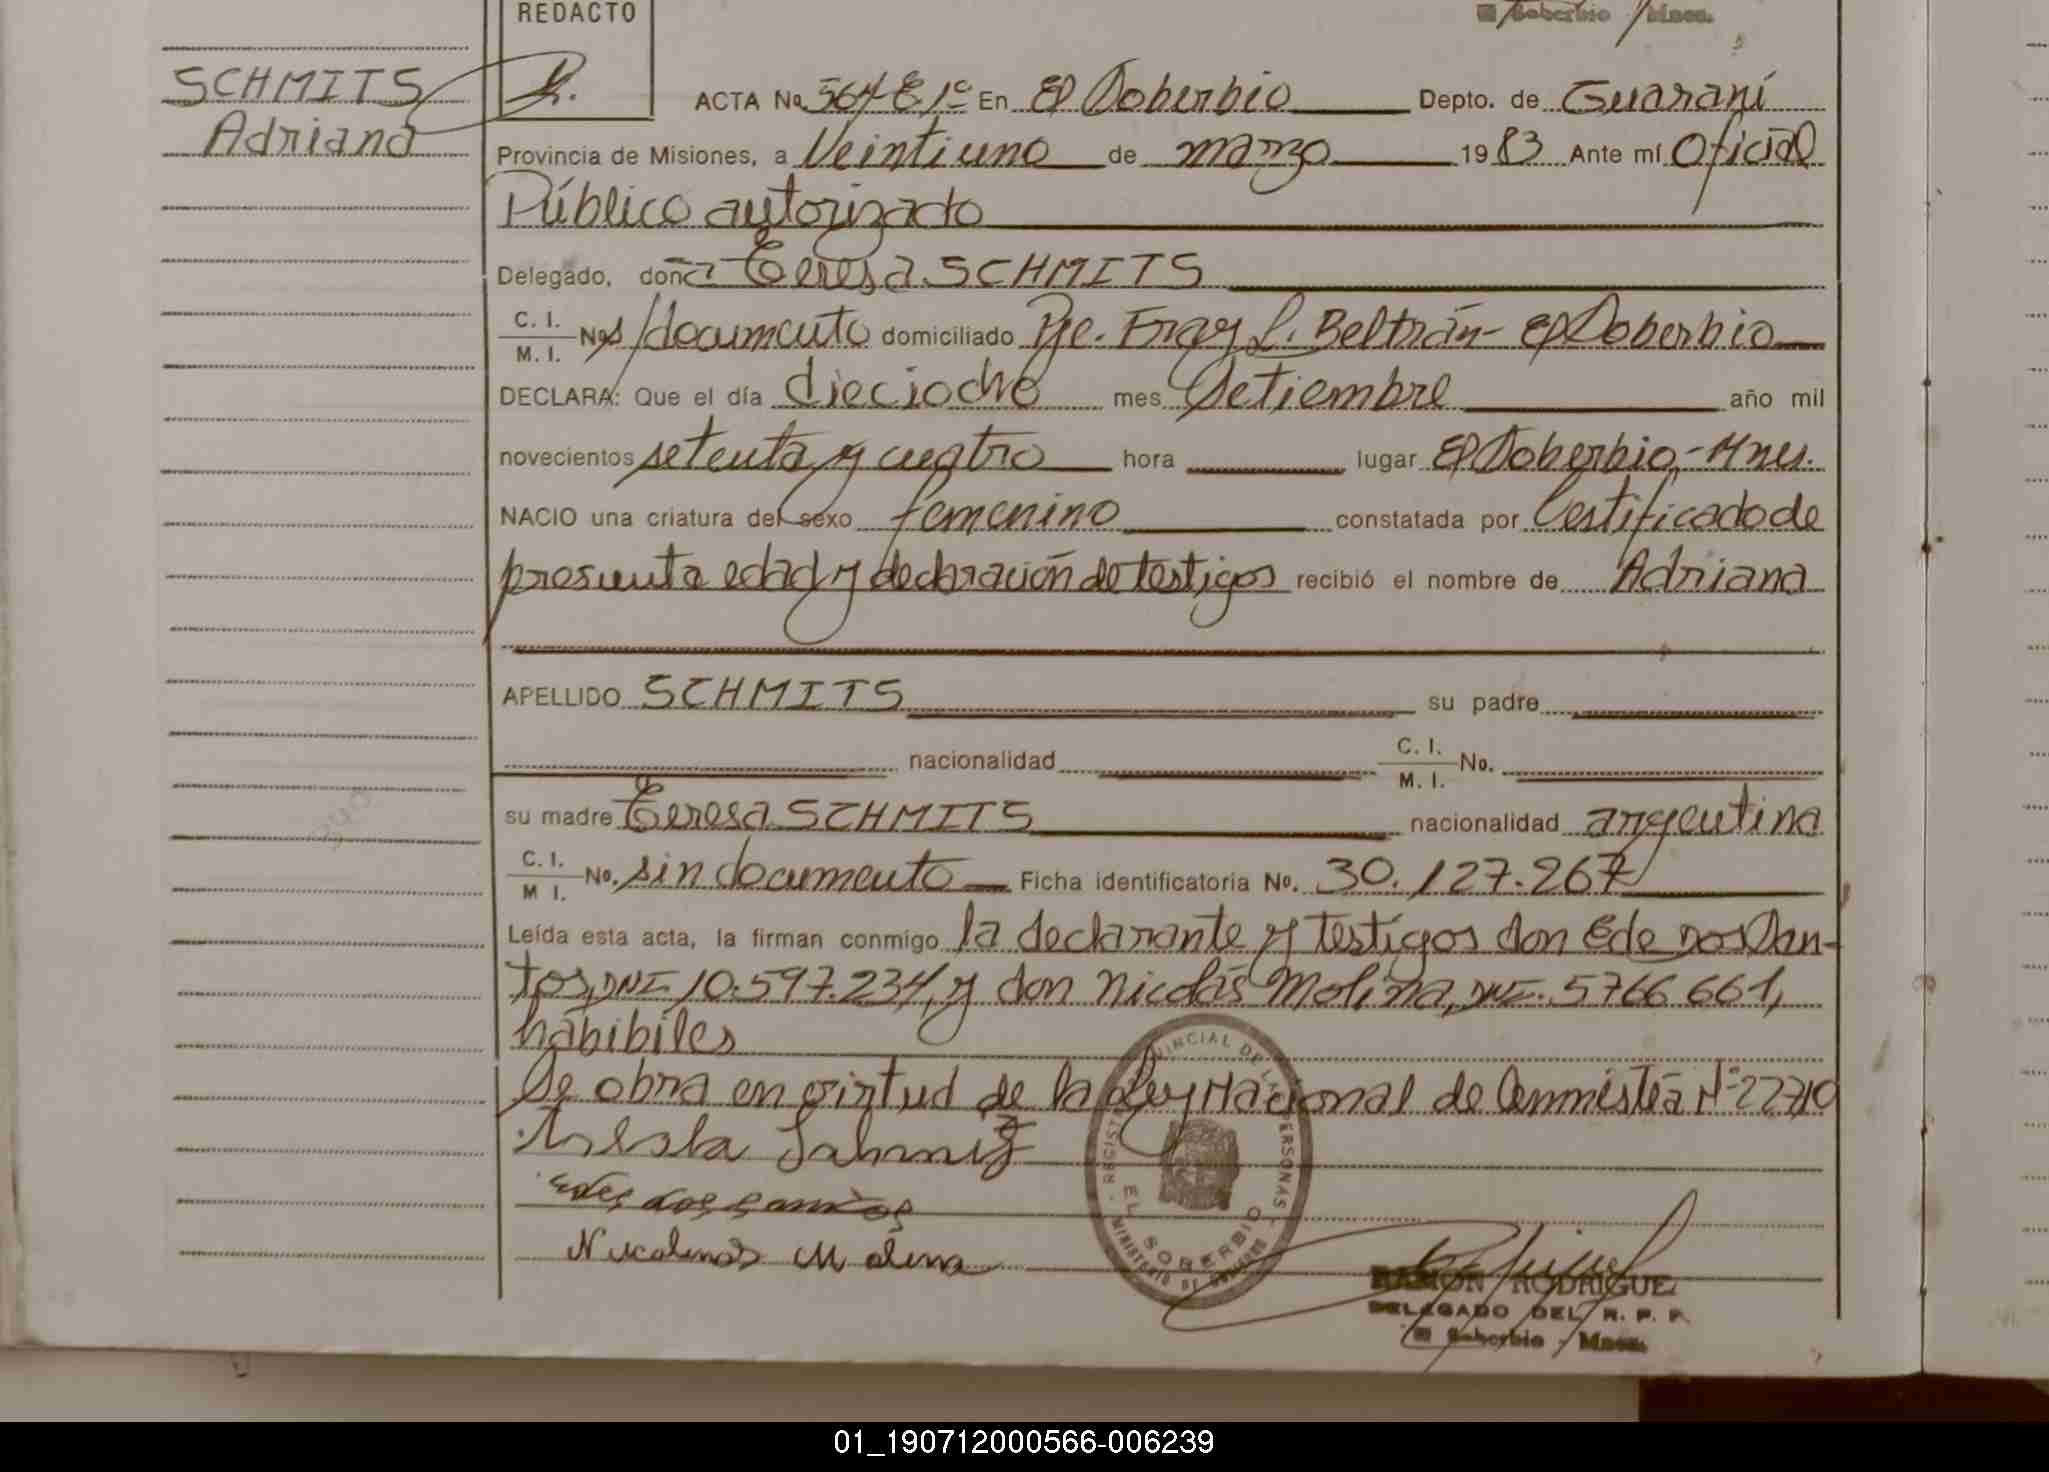 REDACTO
El Soberbio / Mnes.
SCHMITS
Adriana
ACTA No 564 E 1º En El Soberbio Depto. de Guaraní
Provincia de Misiones, a Veintiuno de marzo 1983 Ante mí Oficial
Público autorizado
Delegado, doña Teresa SCHMITS
C. I.
M. I. No s/documento domiciliado Pje. Fray L. Beltrán - El Soberbio
DECLARA: Que el día dieciocho mes Setiembre año mil
novecientos setenta y cuatro hora lugar El Soberbio - Mnes.
NACIO una criatura del sexo femenino constatada por Certificado de
presunta edad y declaración de testigos recibió el nombre de Adriana
APELLIDO SCHMITS su padre
nacionalidad C. I. M. I. No.
su madre Teresa SCHMITS nacionalidad argentina
C. I.
M I. No. sin documento Ficha identificatoria No. 30.127.267
Leída esta acta, la firman conmigo la declarante y testigos don Ede dos San-
tos, DNI 10.597.234, y don Nicolás Molina, DNI. 5766 661,
hábibiles
Se obra en virtud de la Ley Nacional de Amnistía Nº 22710
Edes dos santos
Nicolás Molina
REGISTRO PROVINCIAL DE LAS PERSONAS
EL SOBERBIO
MINISTERIO DE GOBIERNO
RAMÓN RODRIGUEZ
DELEGADO DEL R. P. P.
El Soberbio - Mnes.
01_190712000566-006239